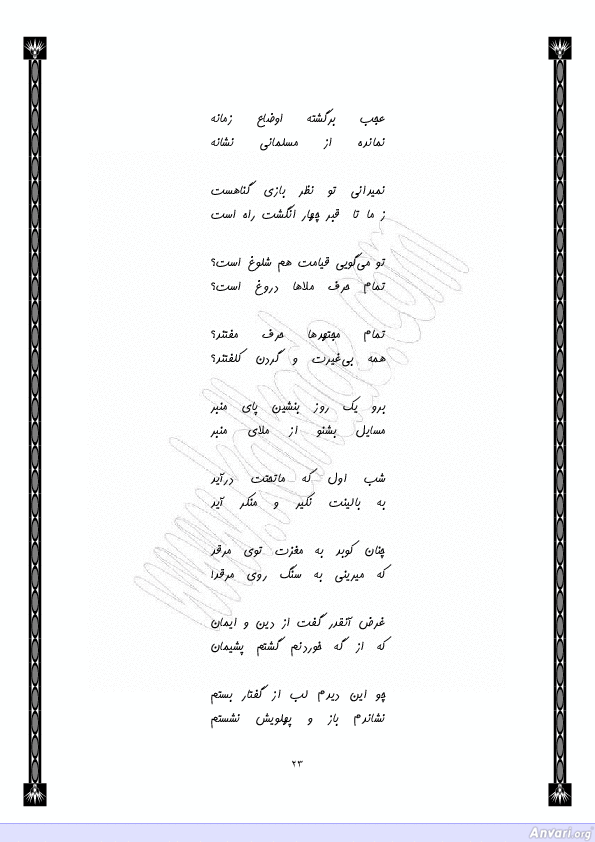 عجب برگشته اوضاع زمانه
نمانده از مسلمانی نشانه
نمیدانی تو نظر بازی گناهست
ز ما تا قبر چهار انگشت راه است
تو می‌گویی قیامت هم شلوغ است؟
تمام حرف ملاها دروغ است؟
تمام مجتهدها حرف مفتند؟
همه بی‌غیرت و گردن کلفتند؟
برو یک روز بنشین پای منبر
مسایل بشنو از ملای منبر
شب اول که ماتحتت درآید
به بالینت نکیر و منکر آید
چنان کوبد به مغزت توی مرقد
که میرینی به سنگ روی مرقد!
غرض آنقدر گفت از دین و ایمان
که از گه خوردنم گشتم پشیمان
چو این دیدم لب از گفتار بستم
نشاندم باز و پهلویش نشستم
۲۳
www.kahkade.com
Anvari.org